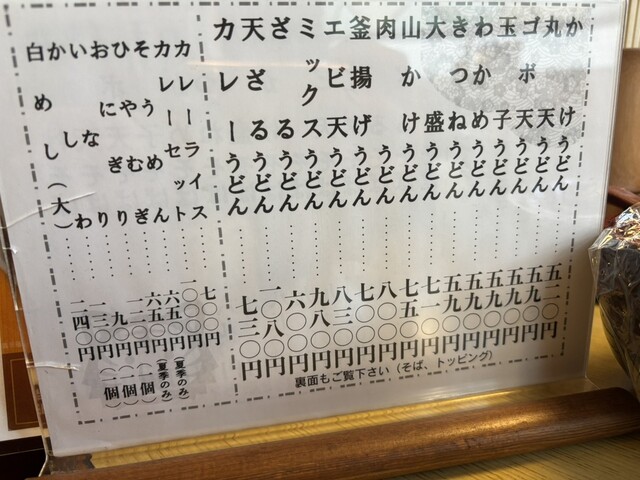 かけうどん……五二〇円
丸天うどん……五九〇円
ゴボ天うどん……五九〇円
玉子うどん……五九〇円
わかめうどん……五九〇円
きつねうどん……五九〇円
大盛うどん……七一〇円
山かけうどん……七五〇円
肉うどん……八〇〇円
釜揚げうどん……七〇〇円
エビ天うどん……八三〇円
ミックスうどん……九八〇円
ざるうどん……六〇〇円
天ざるうどん……一〇八〇円
カレーうどん……七三〇円
裏面もご覧下さい（そば、トッピング）
カレーライス……七〇〇円
カレーセット……一〇〇〇円
そうめん……六五〇円（夏季のみ）
ひやむぎ……六五〇円（夏季のみ）
おにぎり……一二〇円（一個）
いなり……九〇円（一個）
かしわ……一三〇円（一個）
白めし（大）……二四〇円